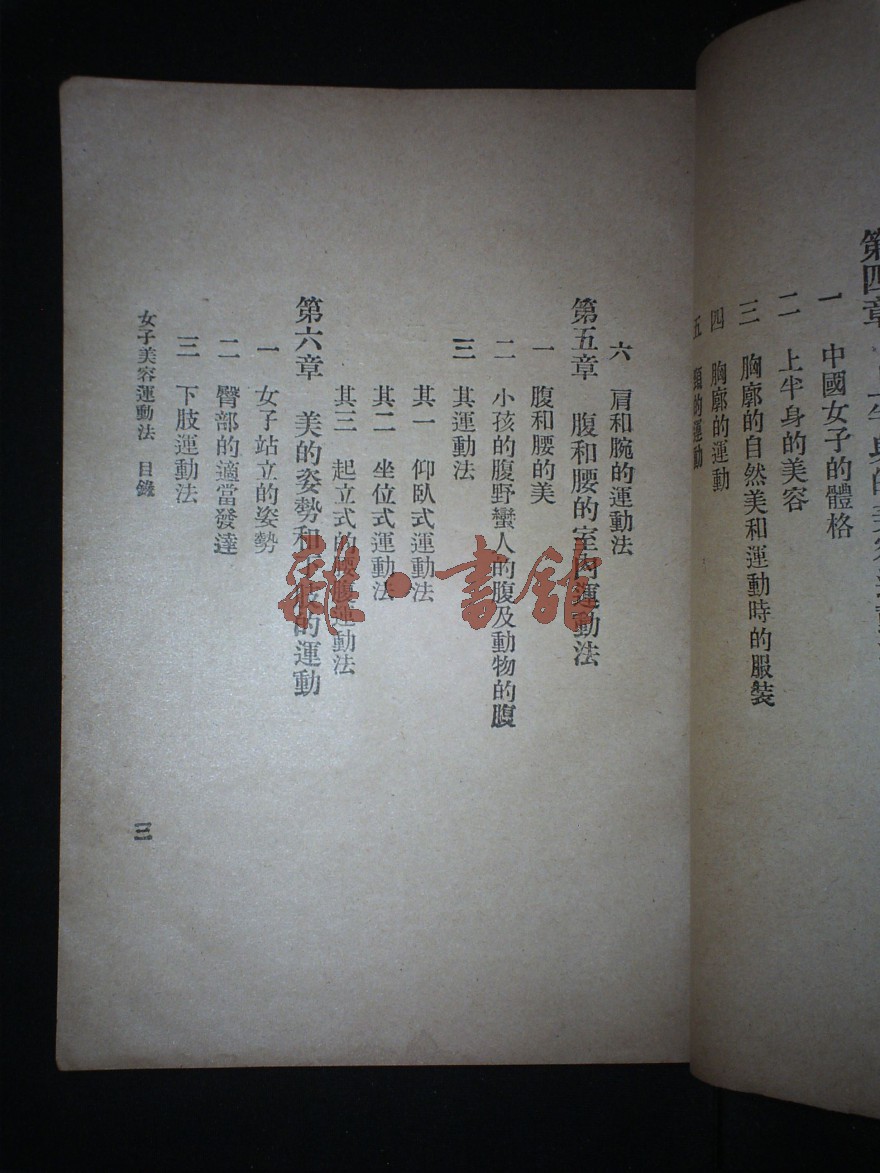 第四章
一 中國女子的體格
二 上半身的美容
三 胸廓的自然美和運動時的服裝
四 胸廓的運動
五 頸的運動
六 肩和腕的運動法
第五章 腹和腰的室內運動法
一 腹和腰的美
二 小孩的腹野蠻人的腹及動物的腹
三 其運動法
其一 仰臥式運動法
其二 坐位式運動法
其三 起立式的腰腹運動法
第六章 美的姿勢和下肢的運動
一 女子站立的姿勢
二 臀部的適當發達
三 下肢運動法
女子美容運動法 目錄
三
雜·書館